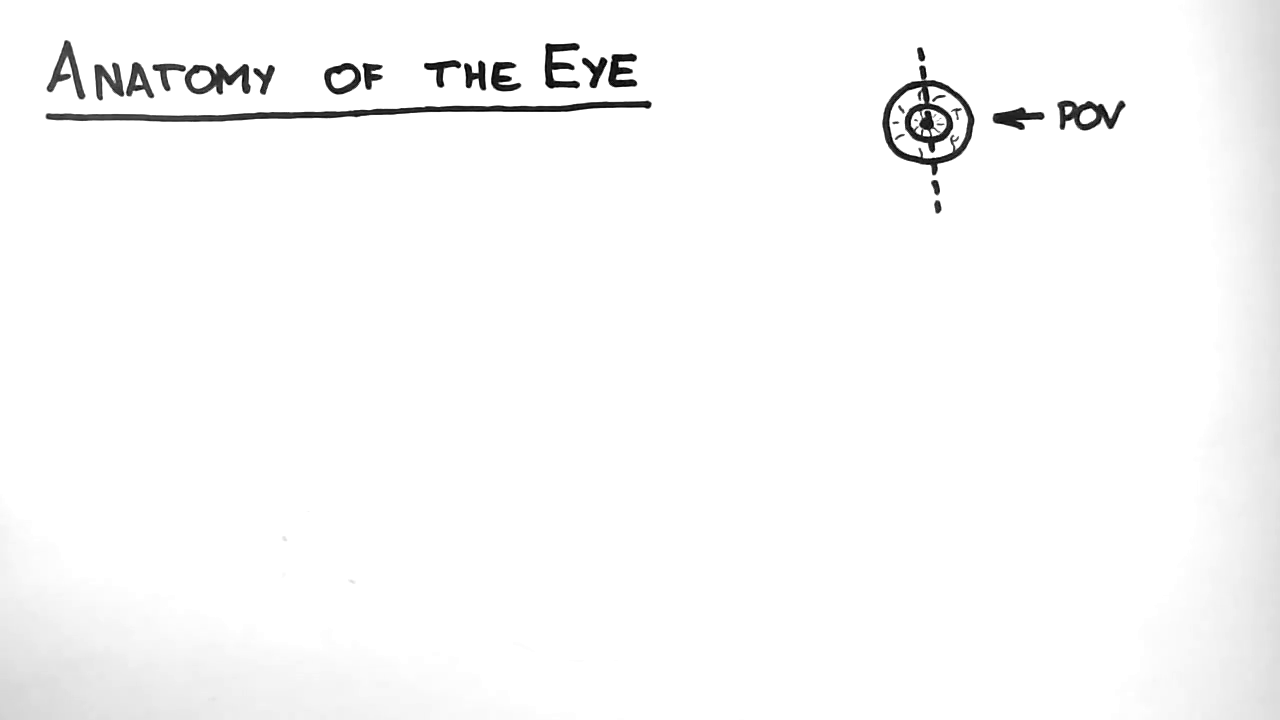 ANATOMY OF THE EYE
POV